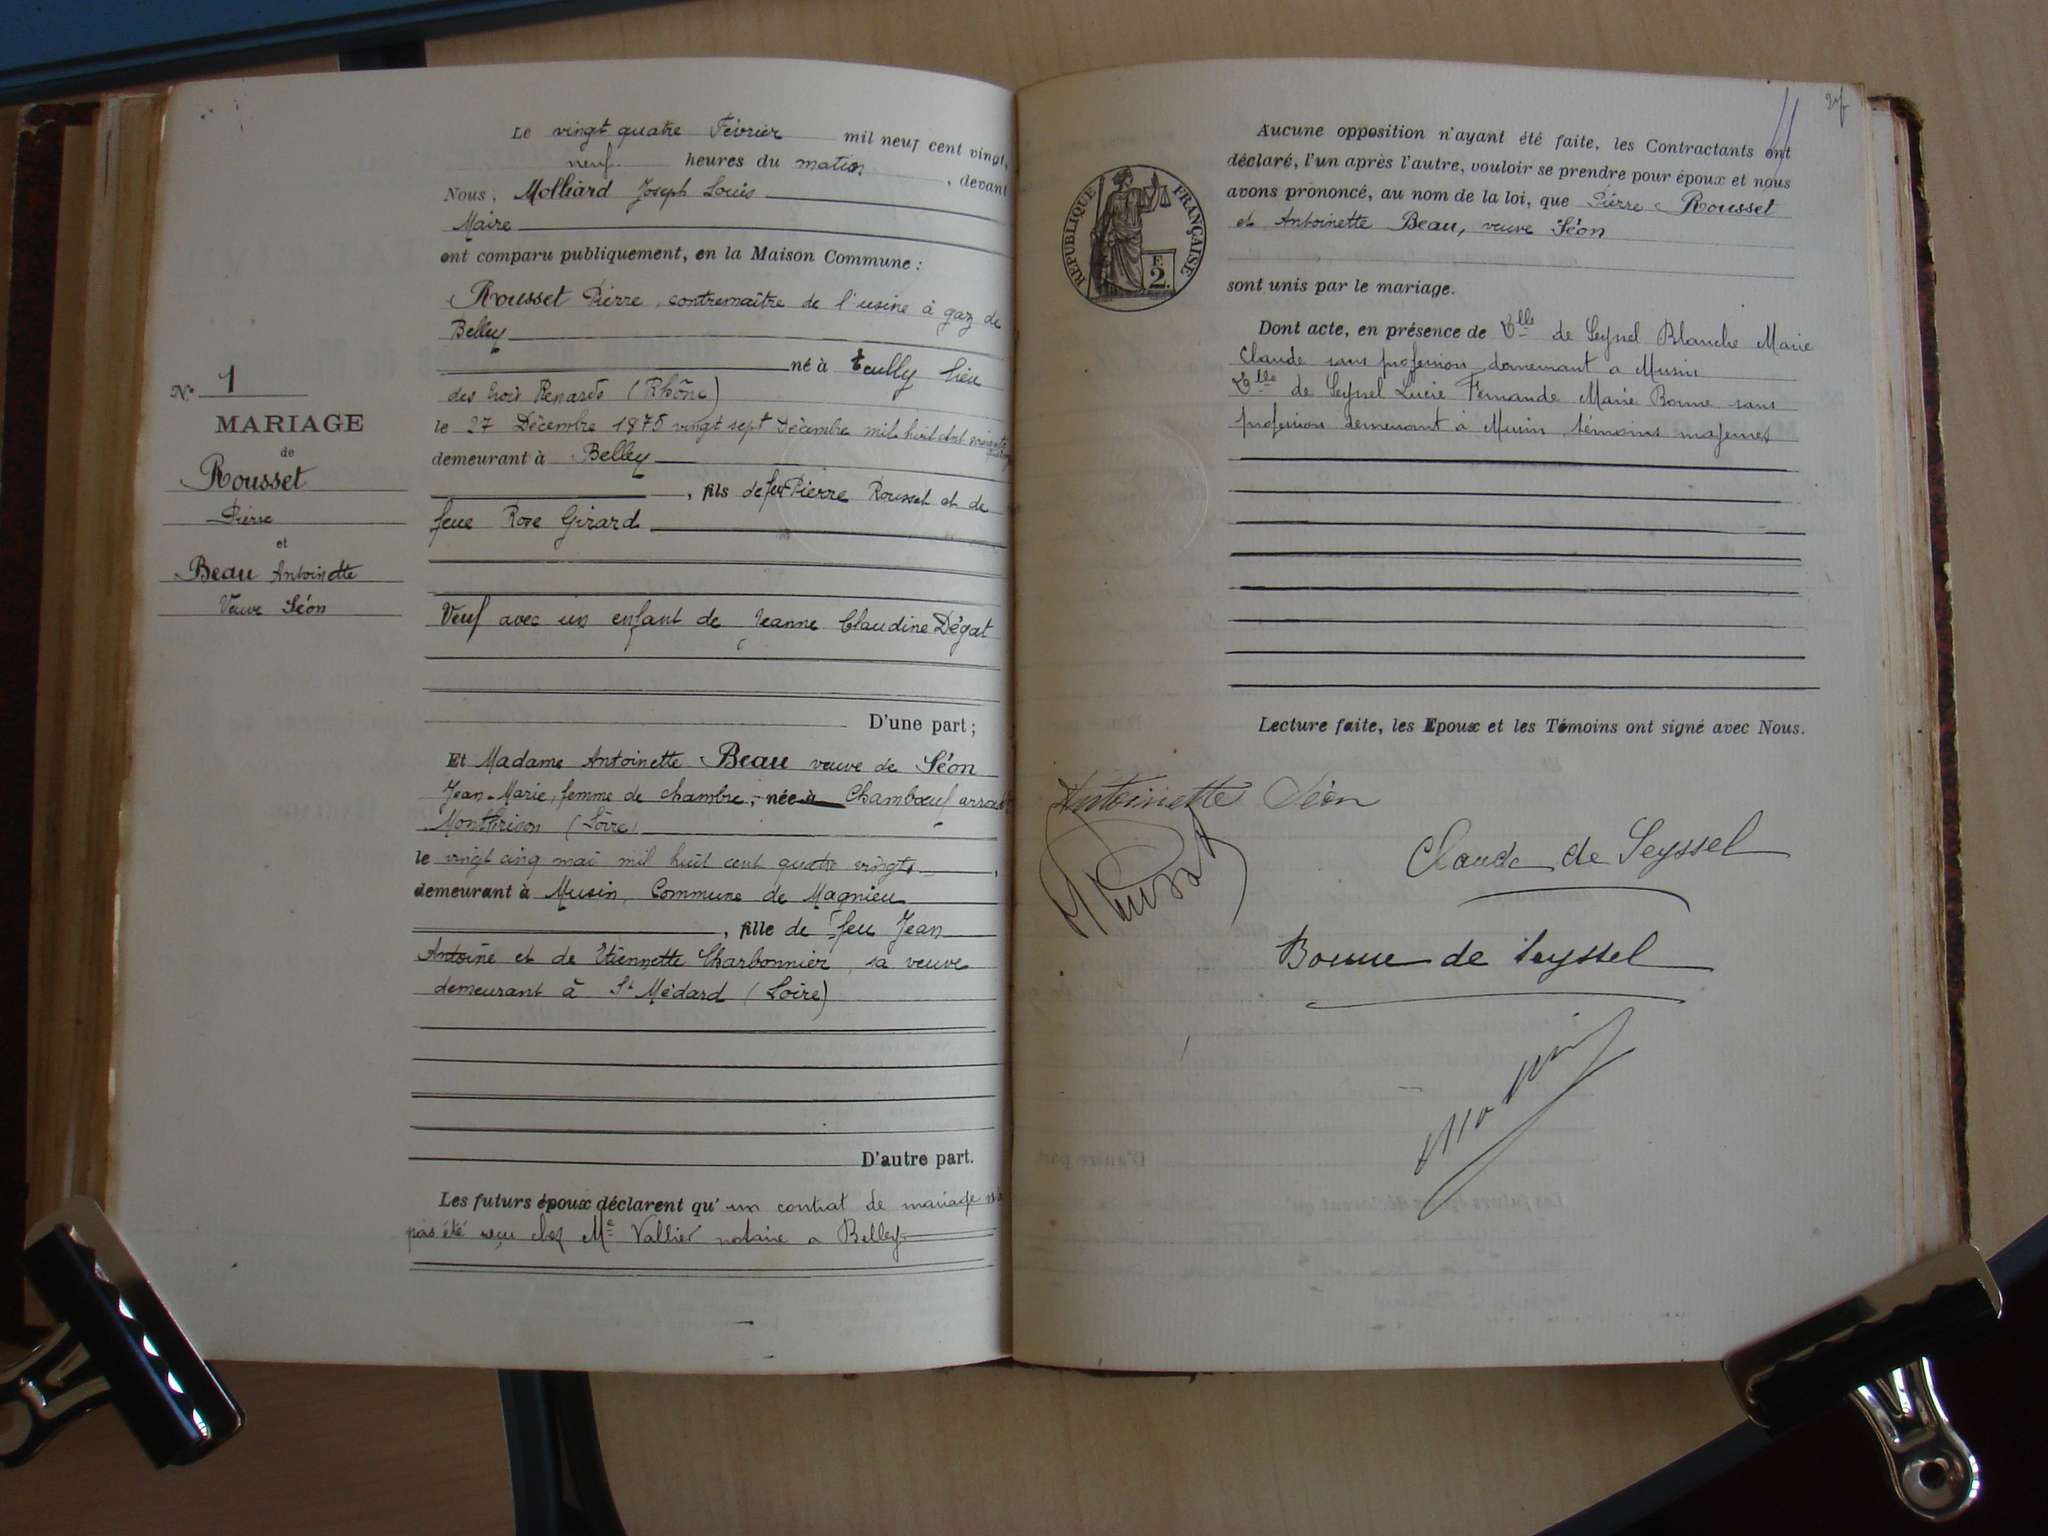 Le vingt quatre Février mil neuf cent vingt,
neuf. heures du matin, devant
Nous, Molliard Joseph Louis
Maire
ont comparu publiquement, en la Maison Commune :
Rousset Pierre, contremaître de l'usine à gaz de
Belley
né à Ecully lieu
des trois Renards (Rhône)
le 27 Décembre 1875 vingt sept Décembre mil huit cent soixante
demeurant à Belley
, fils de feu Pierre Rousset et de
feue Rose Girard
Veuf avec un enfant de Jeanne Claudine Dégat
D'une part ;
Et Madame Antoinette Beau veuve de Séon
Jean-Marie, femme de chambre, née à Chambœuf arrondt
Montbrison (Loire)
le vingt cinq mai mil huit cent quatre vingts,
demeurant à Musin, Commune de Magnieu
, fille de feu Jean
Antoine et de Etiennette Charbonnier, sa veuve
demeurant à St Médard (Loire)
D'autre part.
Les futurs époux déclarent qu'un contrat de mariage n'a
pas été reçu chez Me Vallier notaire à Belley
No 1
MARIAGE
de
Rousset
Pierre
et
Beau Antoinette
Veuve Séon
RÉPUBLIQUE FRANÇAISE
F.
2.
Aucune opposition n'ayant été faite, les Contractants ont
déclaré, l'un après l'autre, vouloir se prendre pour époux et nous
avons prononcé, au nom de la loi, que Pierre Rousset
et Antoinette Beau, veuve Séon
sont unis par le mariage.
Dont acte, en présence de Dlle de Seyssel Blanche Marie
Claude sans profession demeurant à Musin
Dlle de Seyssel Lucie Fernande Marie Bonne sans
profession demeurant à Musin témoins majeures
Lecture faite, les Epoux et les Témoins ont signé avec Nous.
Antoinette Séon
Claude de Seyssel
Bonne de Seyssel